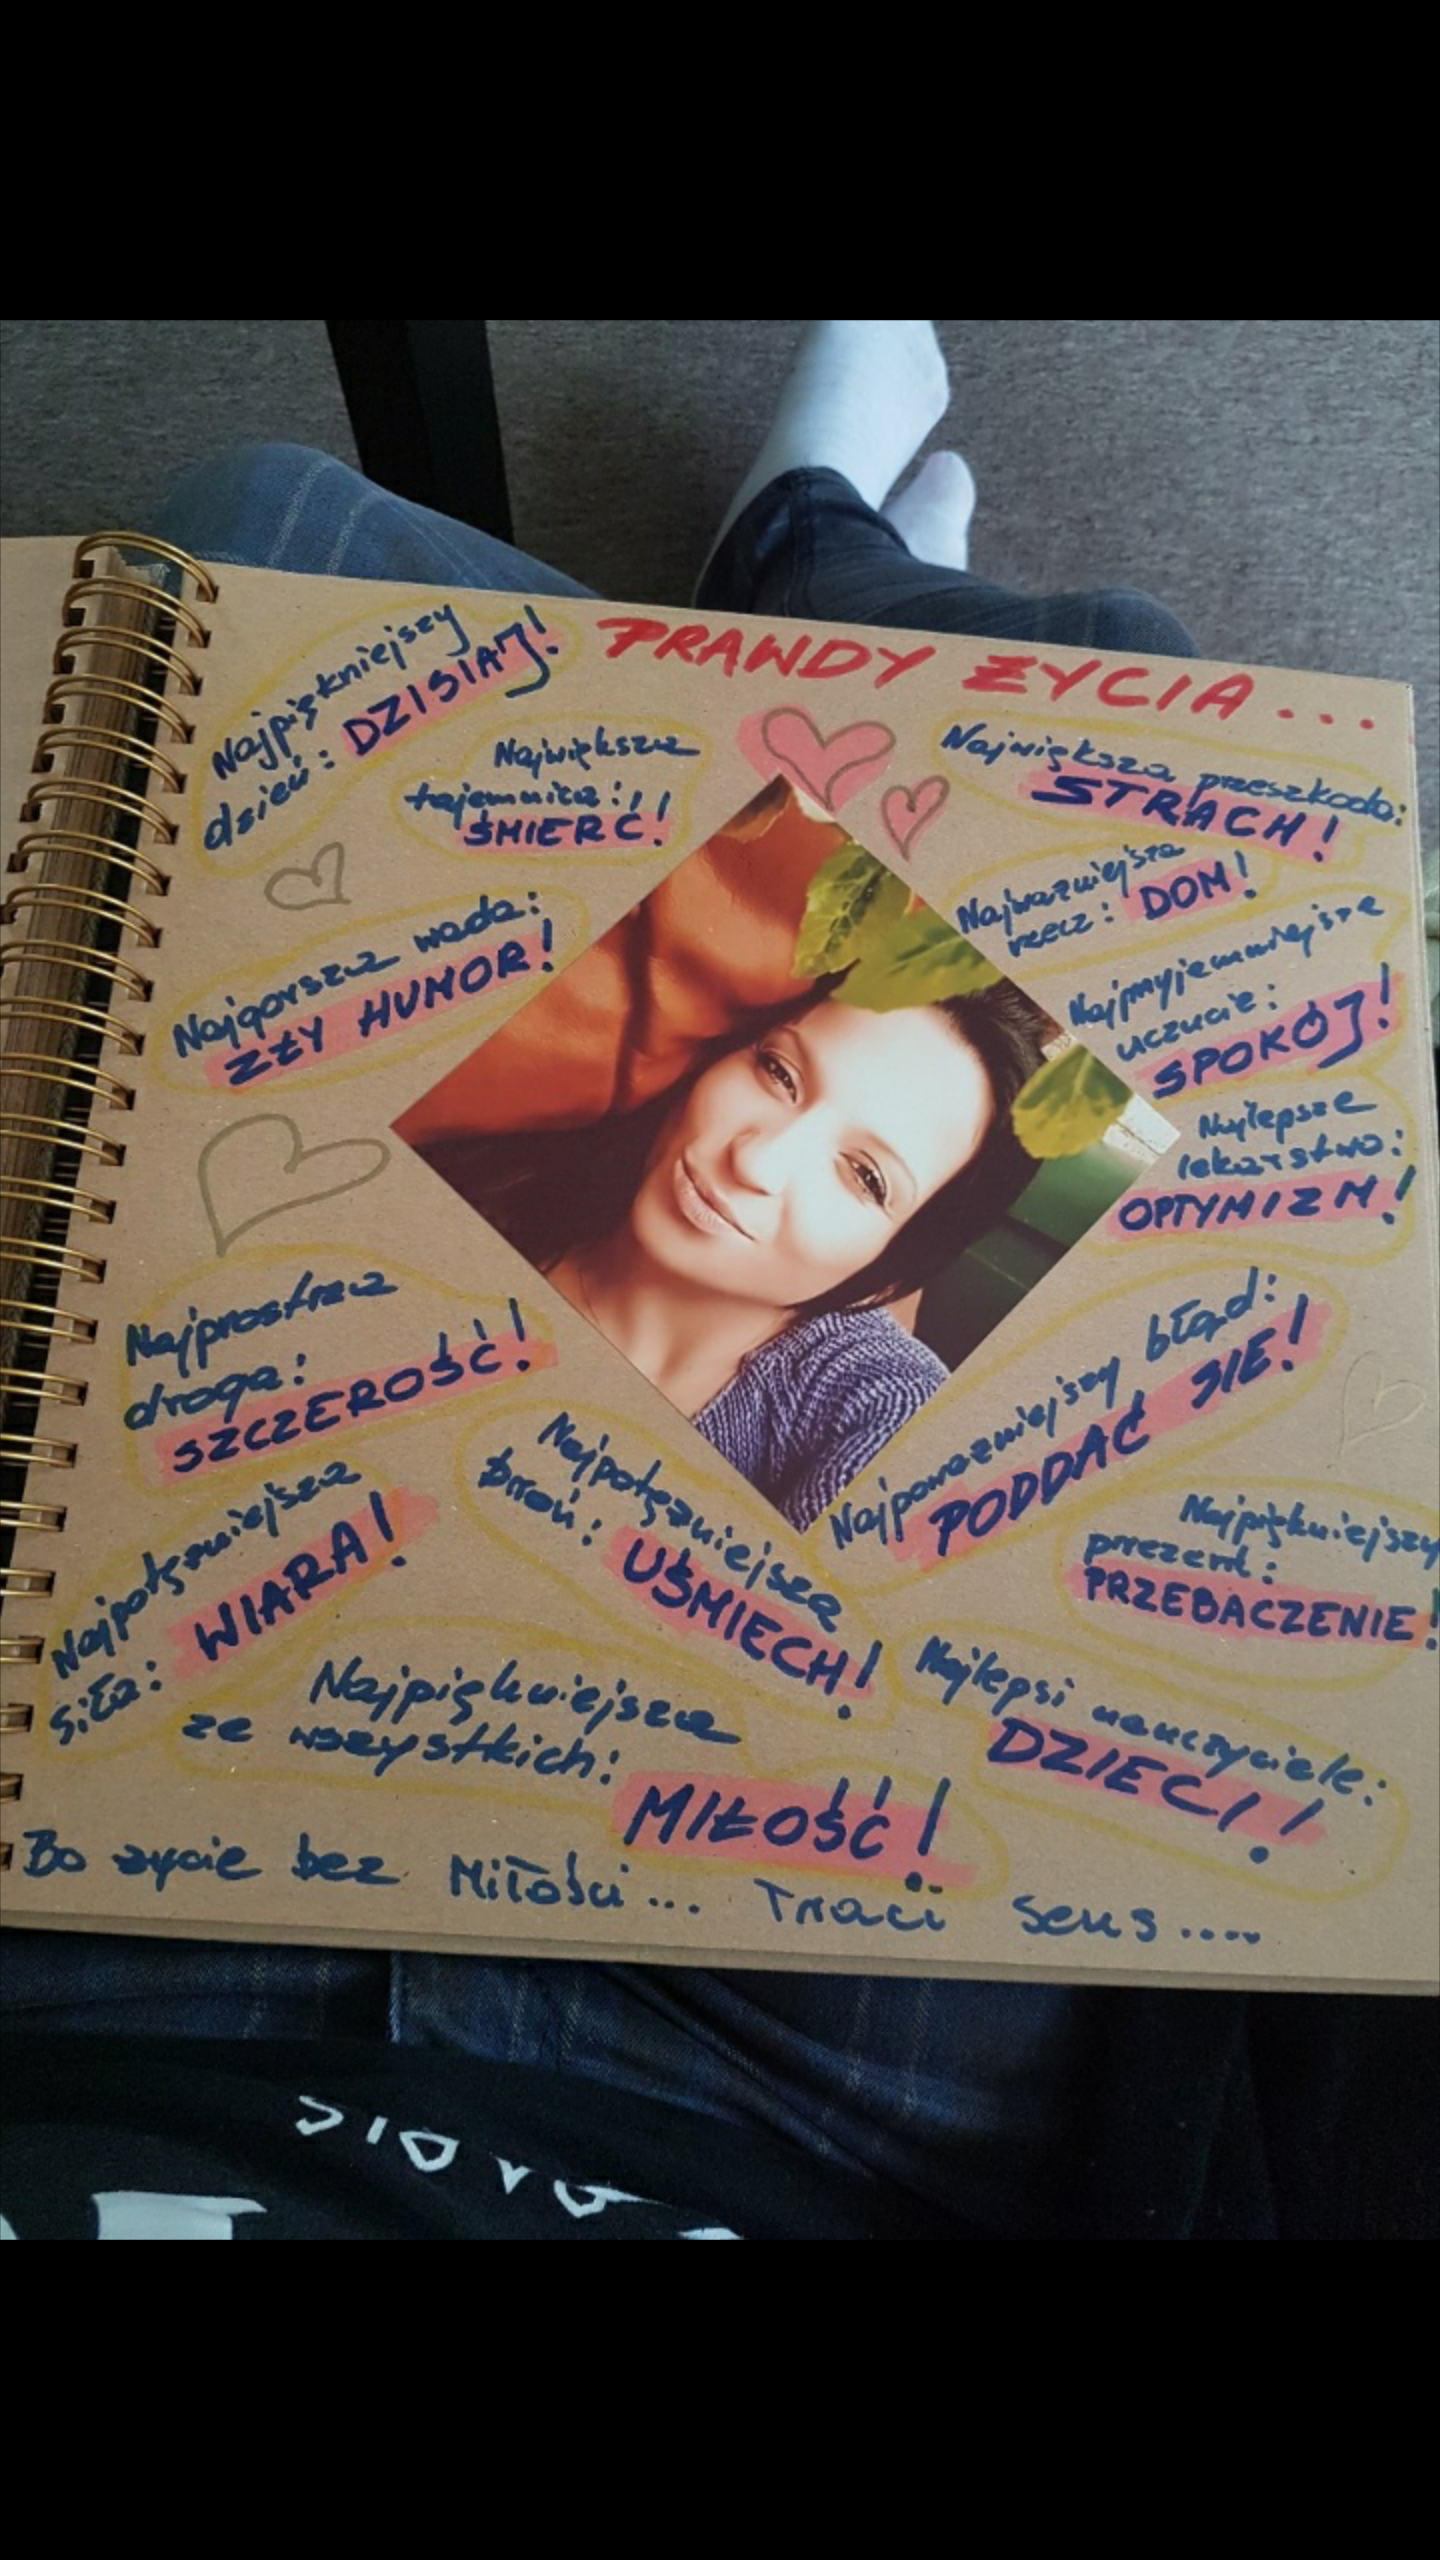 PRAWDY ŻYCIA...
Najpiękniejszy
dzień: DZISIAJ!
Największa
tajemnica:
ŚMIERĆ!
Największa przeszkoda:
STRACH!
Najważniejsza
rzecz: DOM!
Najgorsza wada:
ZŁY HUMOR!
Najprzyjemniejsze
uczucie:
SPOKÓJ!
Najlepsze
lekarstwo:
OPTYMIZM!
Najprostsza
droga:
SZCZEROŚĆ!
Najpoważniejszy błąd:
PODDAĆ SIE!
Najpotężniejsza
siła: WIARA!
Najpotężniejsza
broń: UŚMIECH!
Najpiękniejszy
prezent:
PRZEBACZENIE!
Najpiękniejsza
ze wszystkich:
MIŁOŚĆ!
Najlepsi nauczyciele:
DZIECI!
Bo życie bez Miłości... Traci sens.....